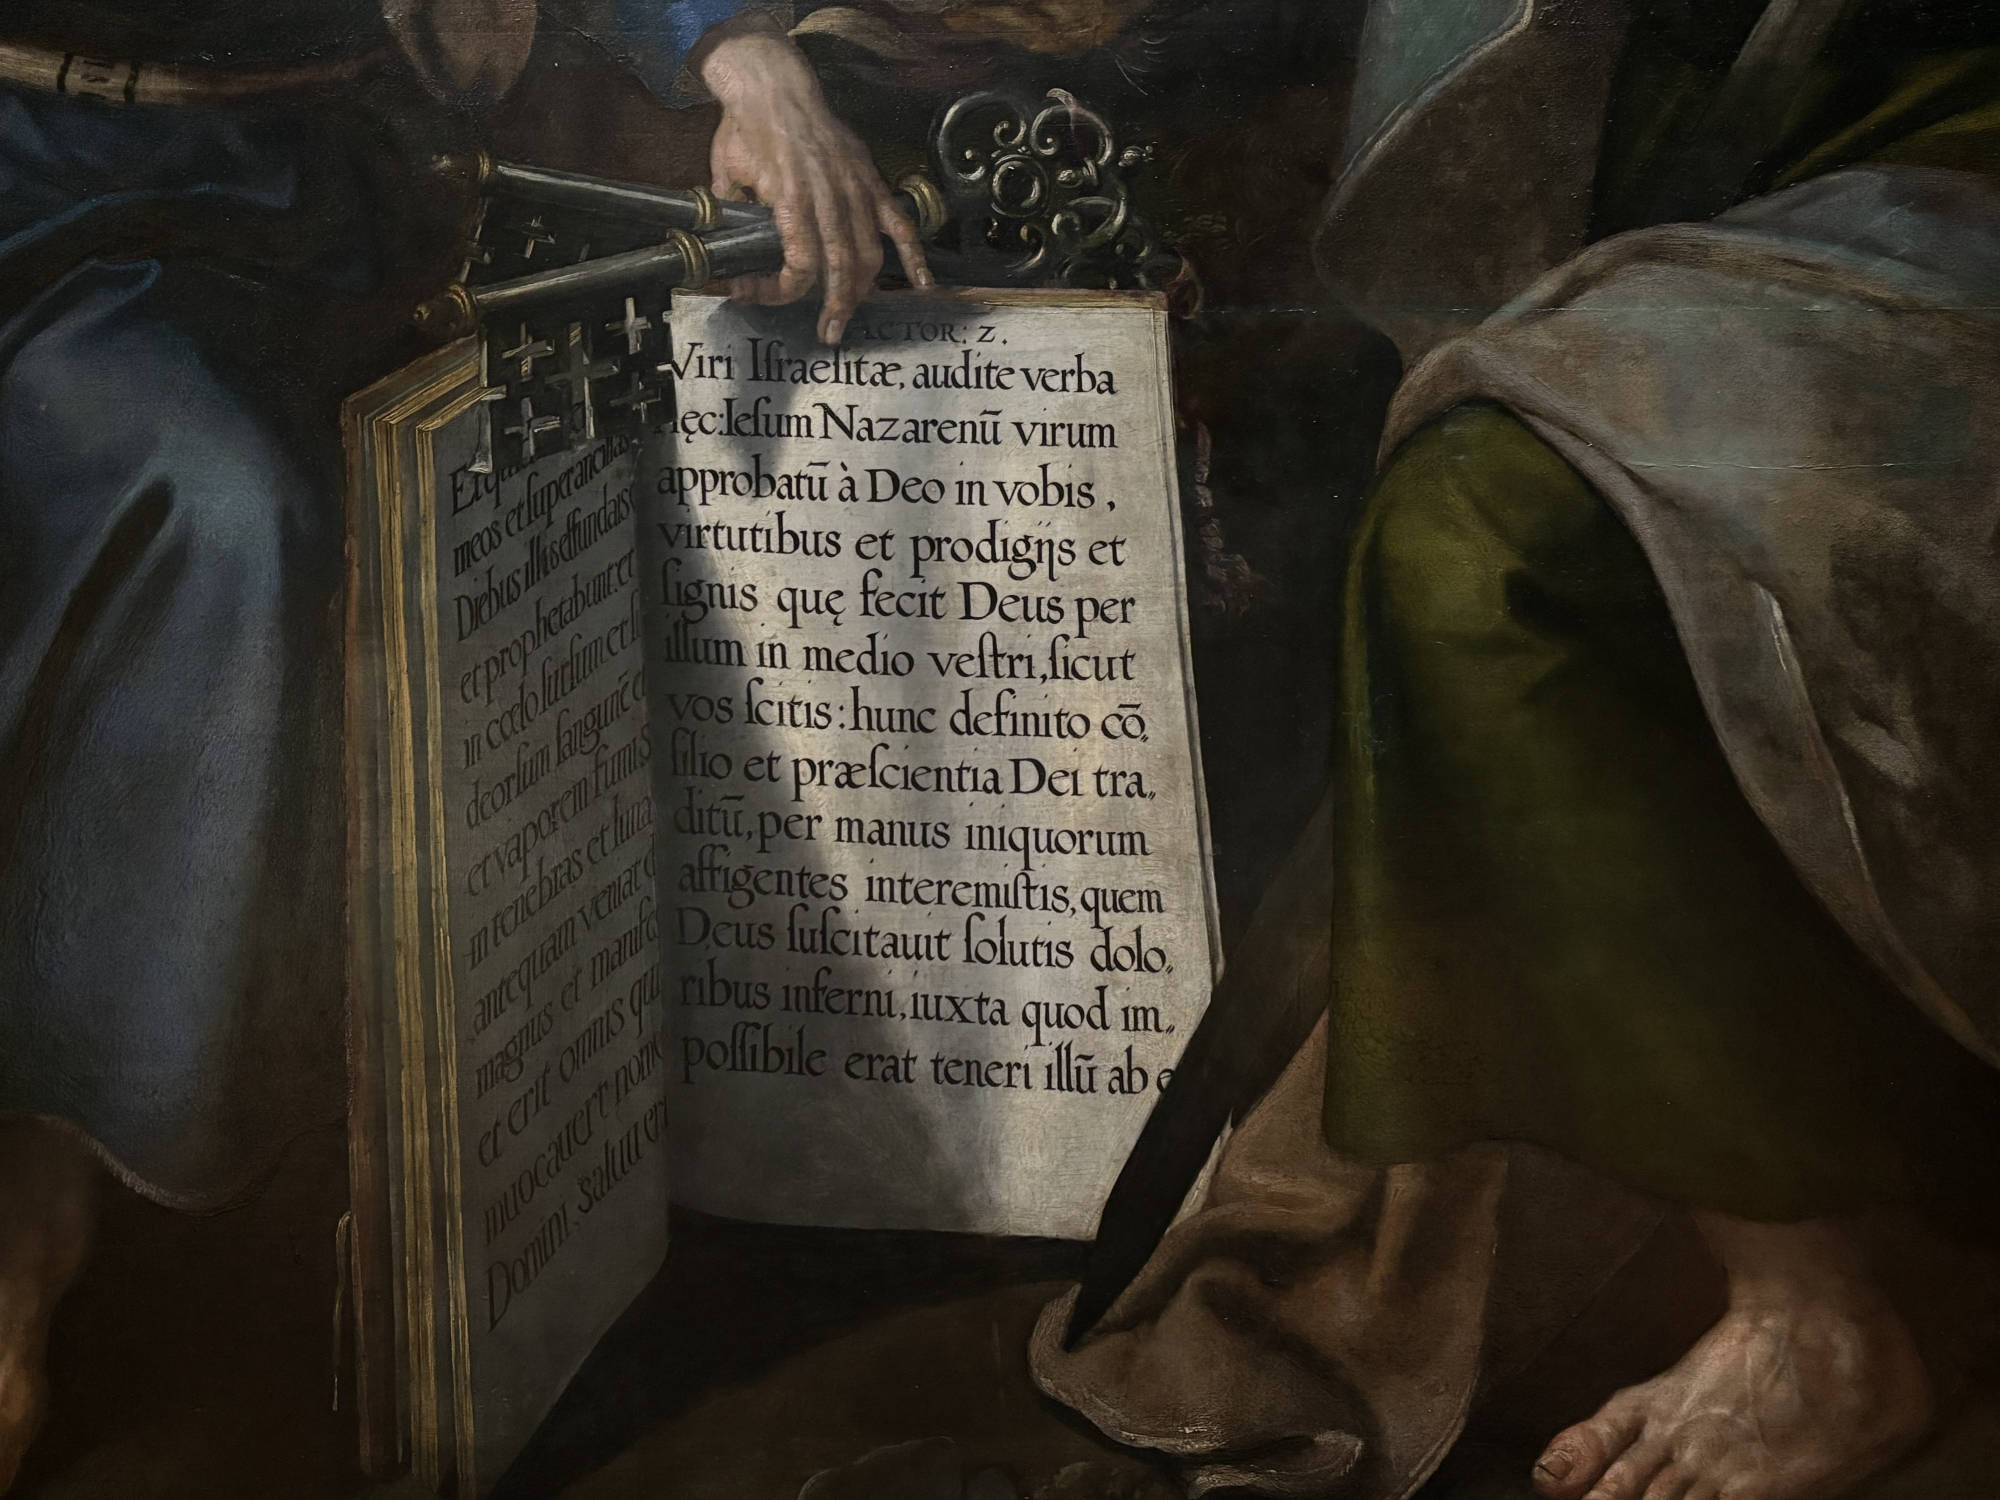 meos et super ancillas
Diebus illis effundam
et prophetabunt: et
in cœlo sursum et si
deorsum sanguinē et
et vaporem fumi S
in tenebras et luna
antequam veniat d
magnus et manifes
et erit omnis qui
inuocauerit nomē
Domini, saluus eri
ACTOR: 2.
Viri Iſraelitæ, audite verba
hęc: Ieſum Nazarenū virum
approbatū à Deo in vobis,
virtutibus et prodigijs et
ſignis quę fecit Deus per
illum in medio veſtri, ſicut
vos ſcitis: hunc definito cō„
ſilio et præſcientia Dei tra„
ditū, per manus iniquorum
affigentes interemiſtis, quem
Deus ſuſcitauit ſolutis dolo„
ribus inferni, iuxta quod im„
poſſibile erat teneri illū ab e